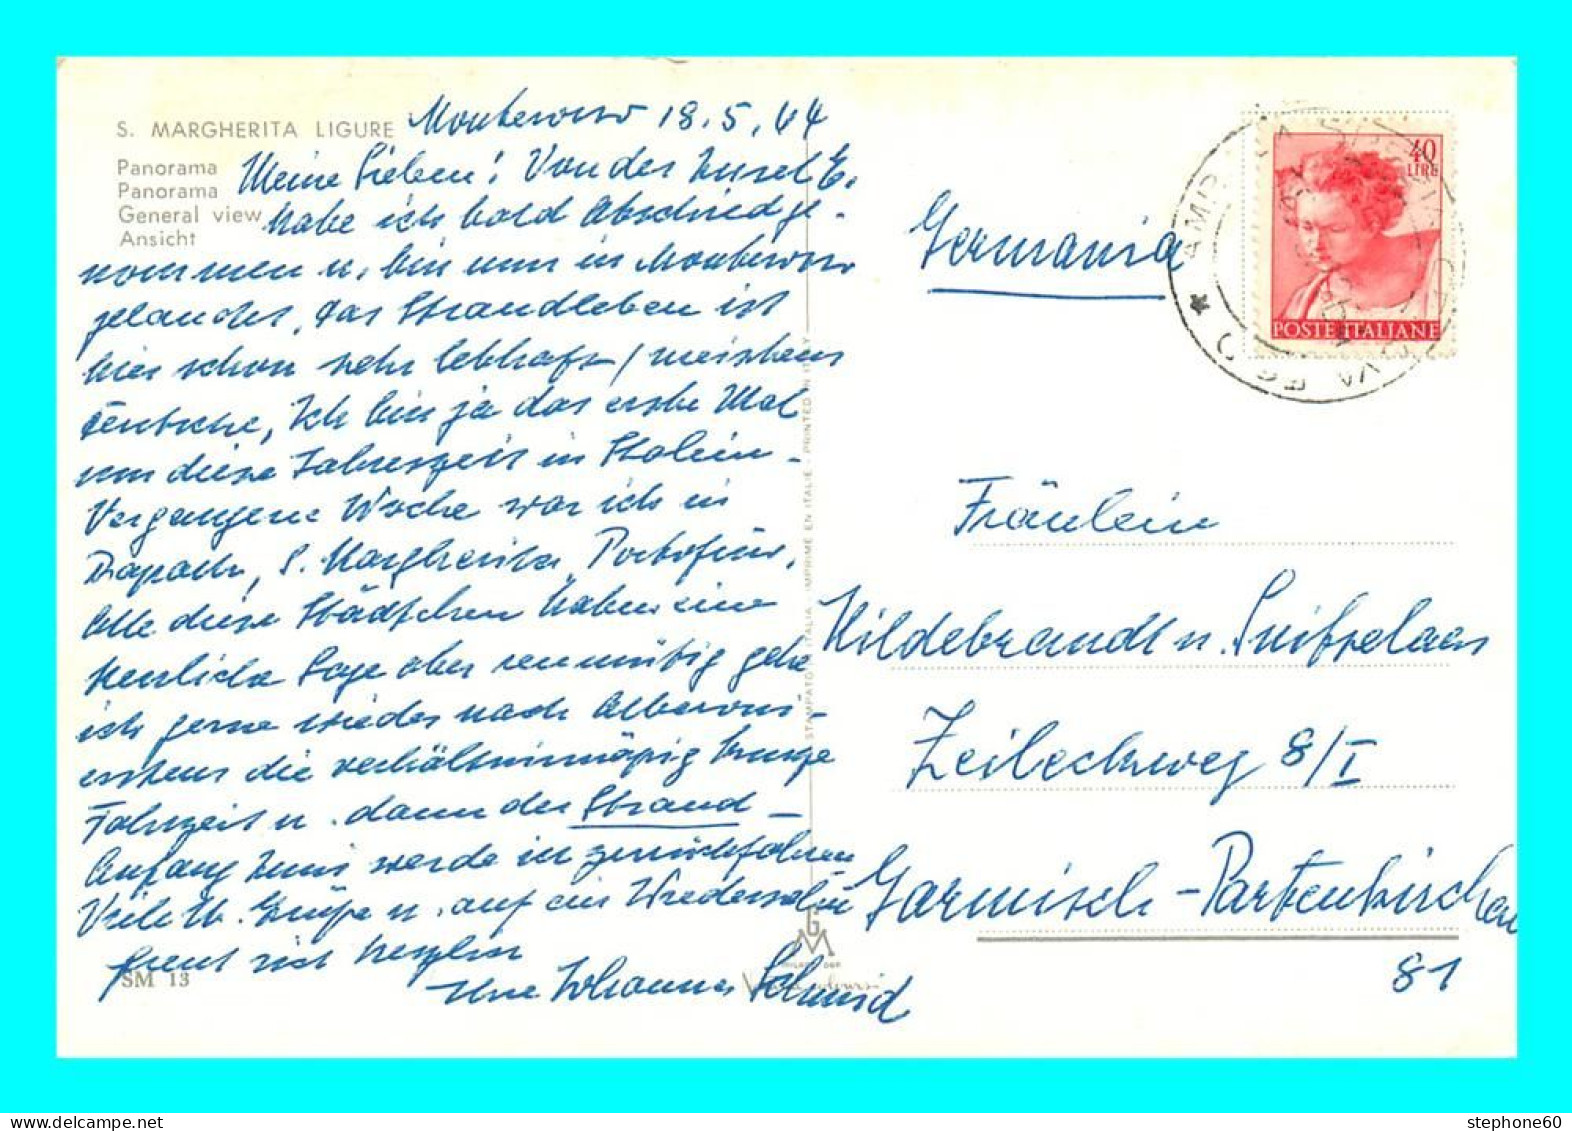 S. MARGHERITA LIGURE
Panorama
Panorama
General view
Ansicht
Monterosso 18.5.64
Meine Lieben! Von der Insel E.
habe ich bald Abschied ge-
nommen u. bin nun in Monterosso
gelandet, das Strandleben ist
hier schon sehr lebhaft / meistens
Deutsche, Ich bin ja das erste Mal
um diese Jahreszeit in Italien -
Vergangene Woche war ich in
Rapallo, S. Margherita, Portofino,
Alle diese Städtchen haben eine
herrliche Lage aber
ich gerne wieder nach
erstens die verhältnismäßig kurze
Fahrzeit u. dann der Strand -
Anfang Juni werde ich zurückfahren
Viele lb. Grüße u. auf ein Wiedersehen
freut sich herzlich
Ihre Johanna Schmid
SM 13
STAMPATO IN ITALIA - IMPRIME EN ITALIE - PRINTED IN ITALY
Germania
40
LIRE
POSTE ITALIANE
Fräulein
Hildebrandt u.
8/I
Garmisch-Partenkirchen
81
stephone60